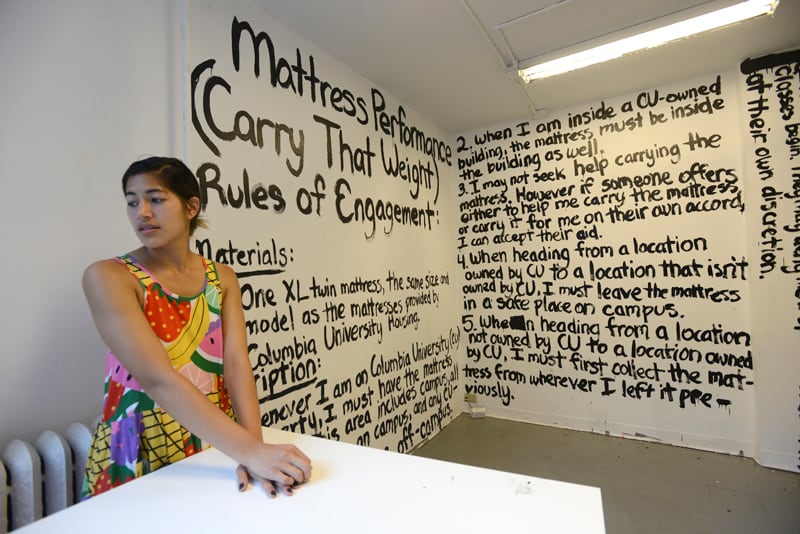 Mattress Performance
(Carry That Weight)
Rules of Engagement:
Materials:
One XL twin mattress, the same size and
model as the mattresses provided by
Columbia University Housing.
ription:
enever I am on Columbia University (CU)
erty, I must have the mattress
is area includes campus, all
on campus, and any CU-
off-campus.
2. When I am inside a CU-owned
building, the mattress must be inside
the building as well.
3. I may not seek help carrying the
mattress. However if someone offers
either to help me carry the mattress,
or carry it for me on their own accord,
I can accept their aid.
4. When heading from a location
owned by CU to a location that isn't
owned by CU, I must leave the mattress
in a safe place on campus.
5. When heading from a location
not owned by CU to a location owned
by CU, I must first collect the mat-
tress from wherever I left it pre-
viously.
Classes begin. They may
at their own discretion.